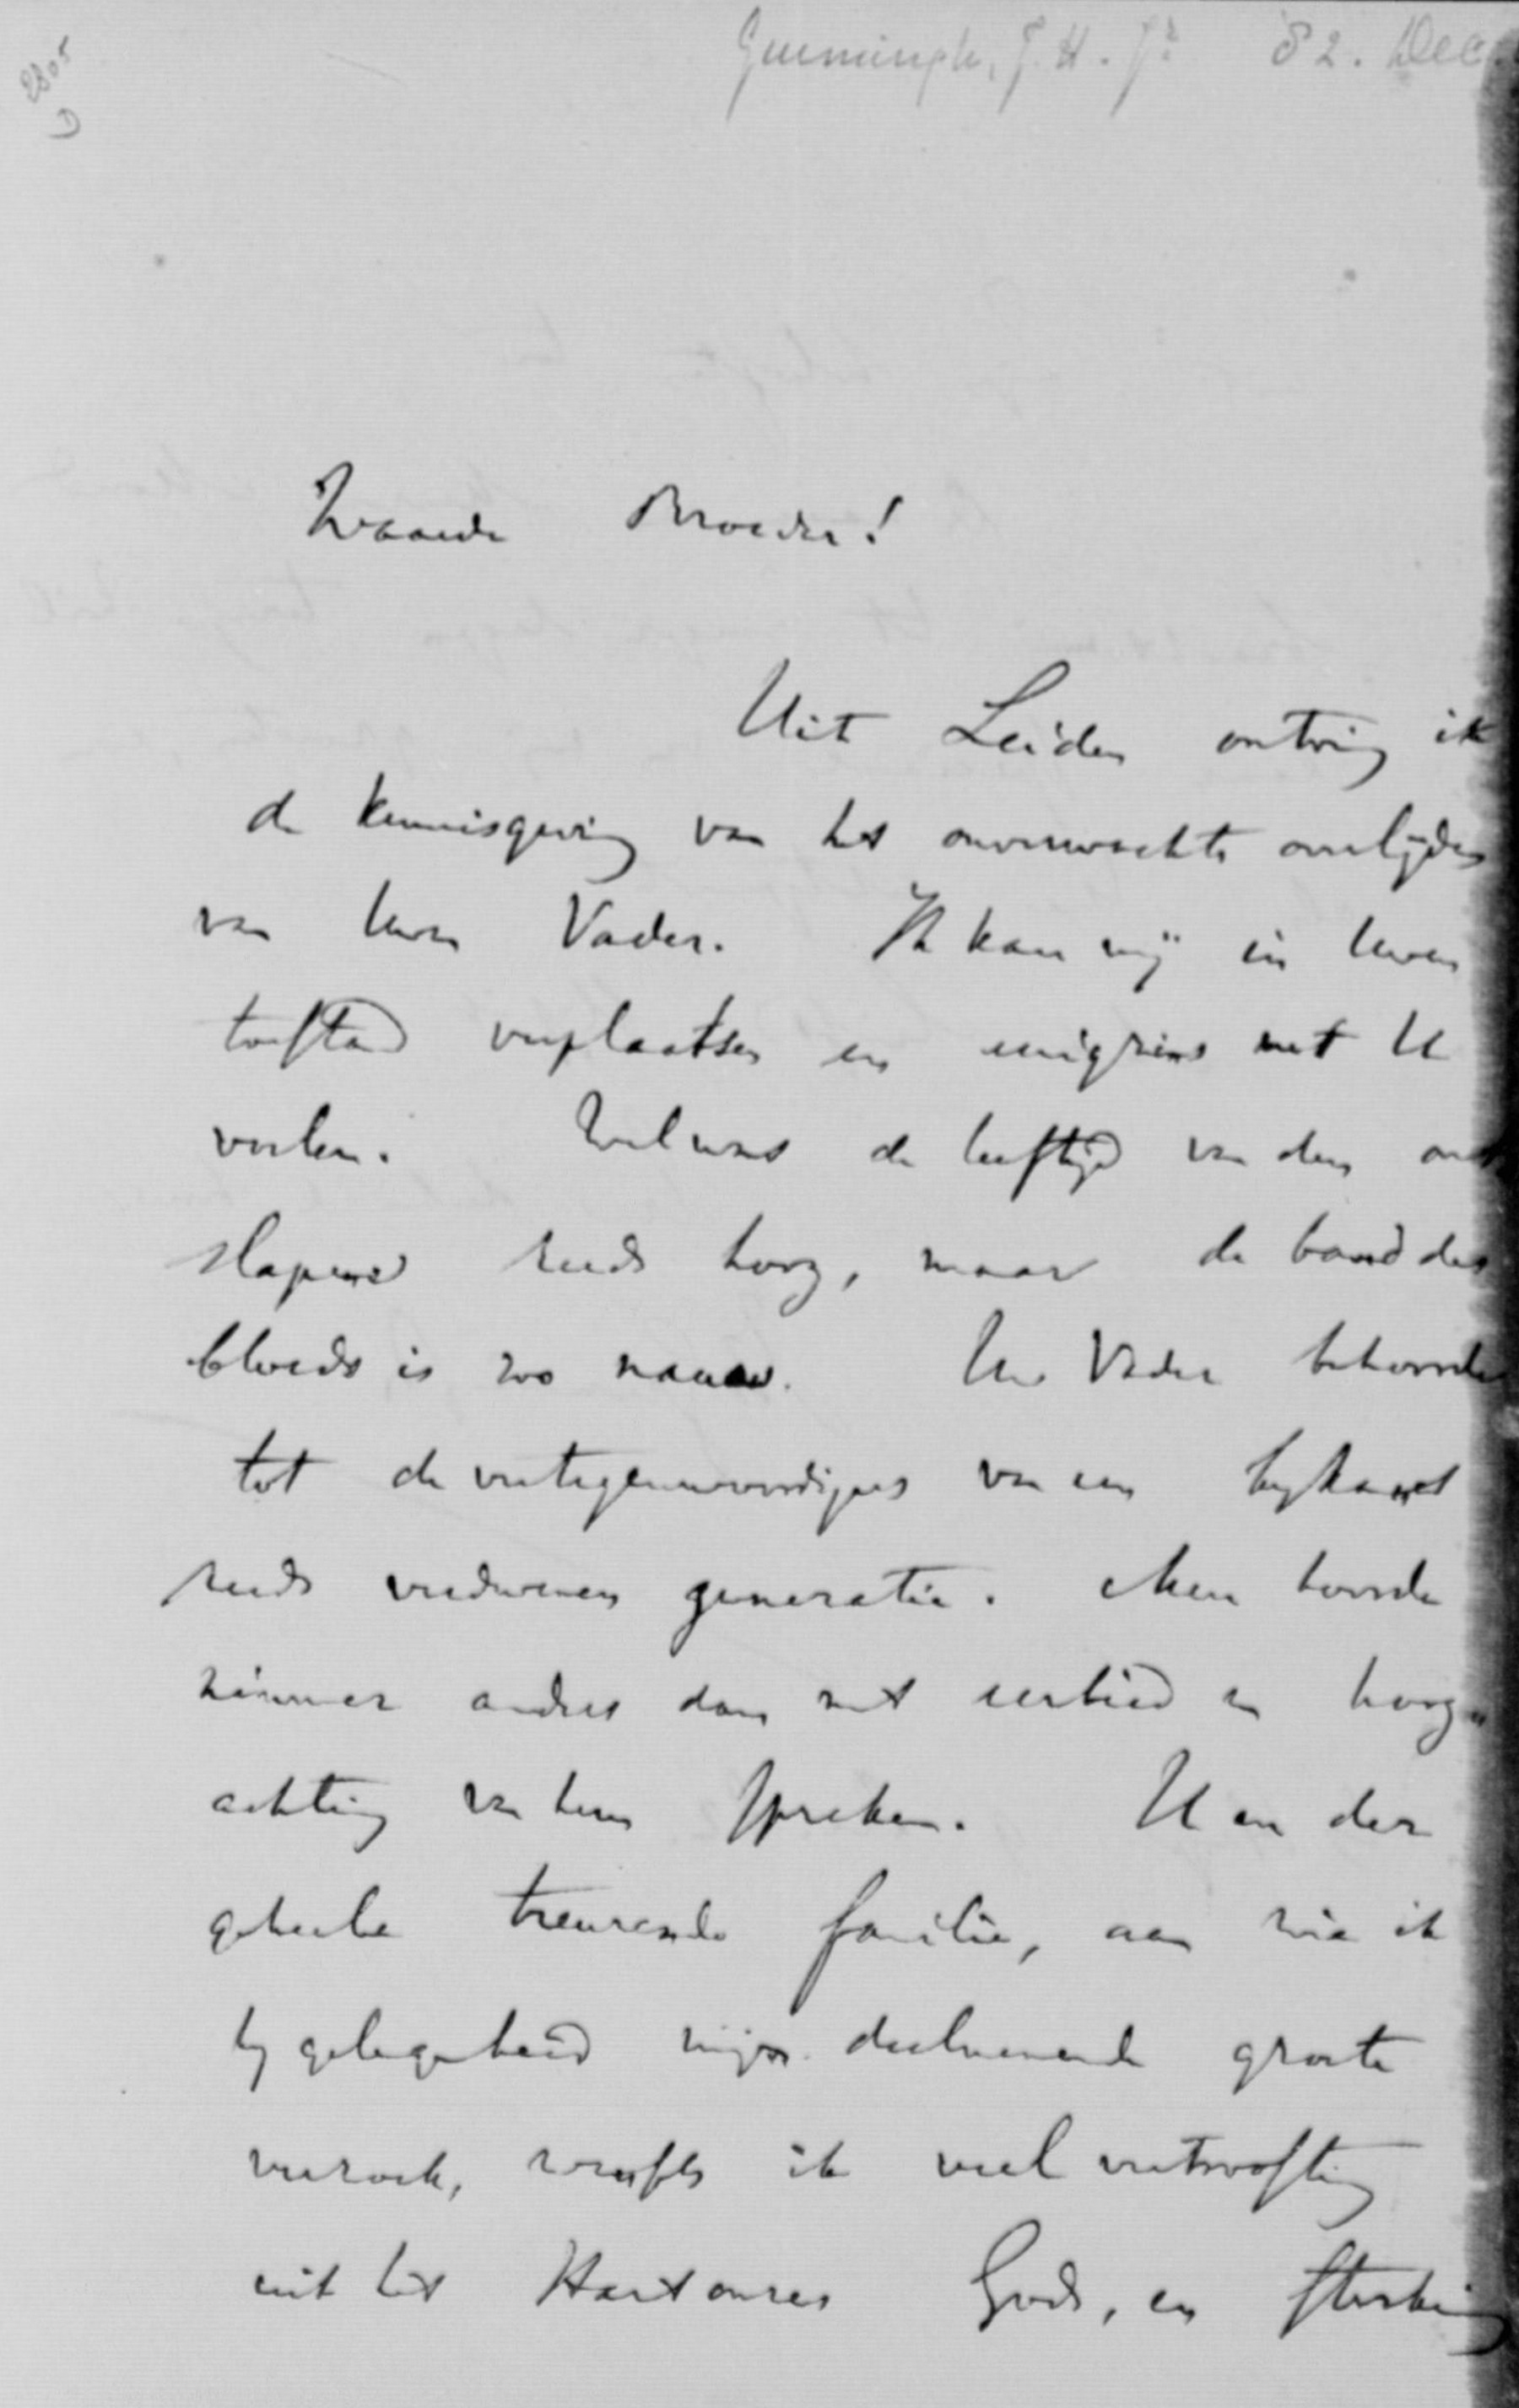 2805
D
Gunningh, J. H. Jr. 82. Dec.
Waarde Broeder!
Uit Leiden ontving ik
de kennisgeving van het onverwachte overlijden
van Uwen Vader. Ik kan mij in Uwen
toestand verplaatsen en eenigzins met U
voelen. Wel was de leeftijd van den ont-
slapene reeds hoog, maar de band des
bloeds is zoo naauw. Uw Vader behoorde
tot de vertegenwoordigers van een bijkans
reeds verdwenen generatie. Men hoorde
nimmer anders dan met eerbied en hoog-
achting van hem spreken. U en der
geheele treurende familie, aan wie ik
bij gelegenheid mijn deelnemende groete
verzoek, wensch ik veel vertroosting
uit het Hart onzes Gods, en sterking